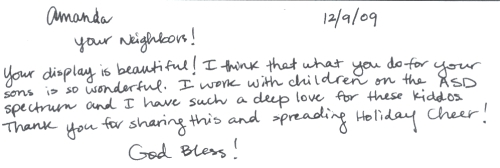 Amanda 12/9/09
Your Neighbors!
Your display is beautiful! I think that what you do for your
sons is so wonderful. I work with children on the ASD
spectrum and I have such a deep love for these kiddos
Thank you for sharing this and spreading Holiday Cheer!
God Bless!